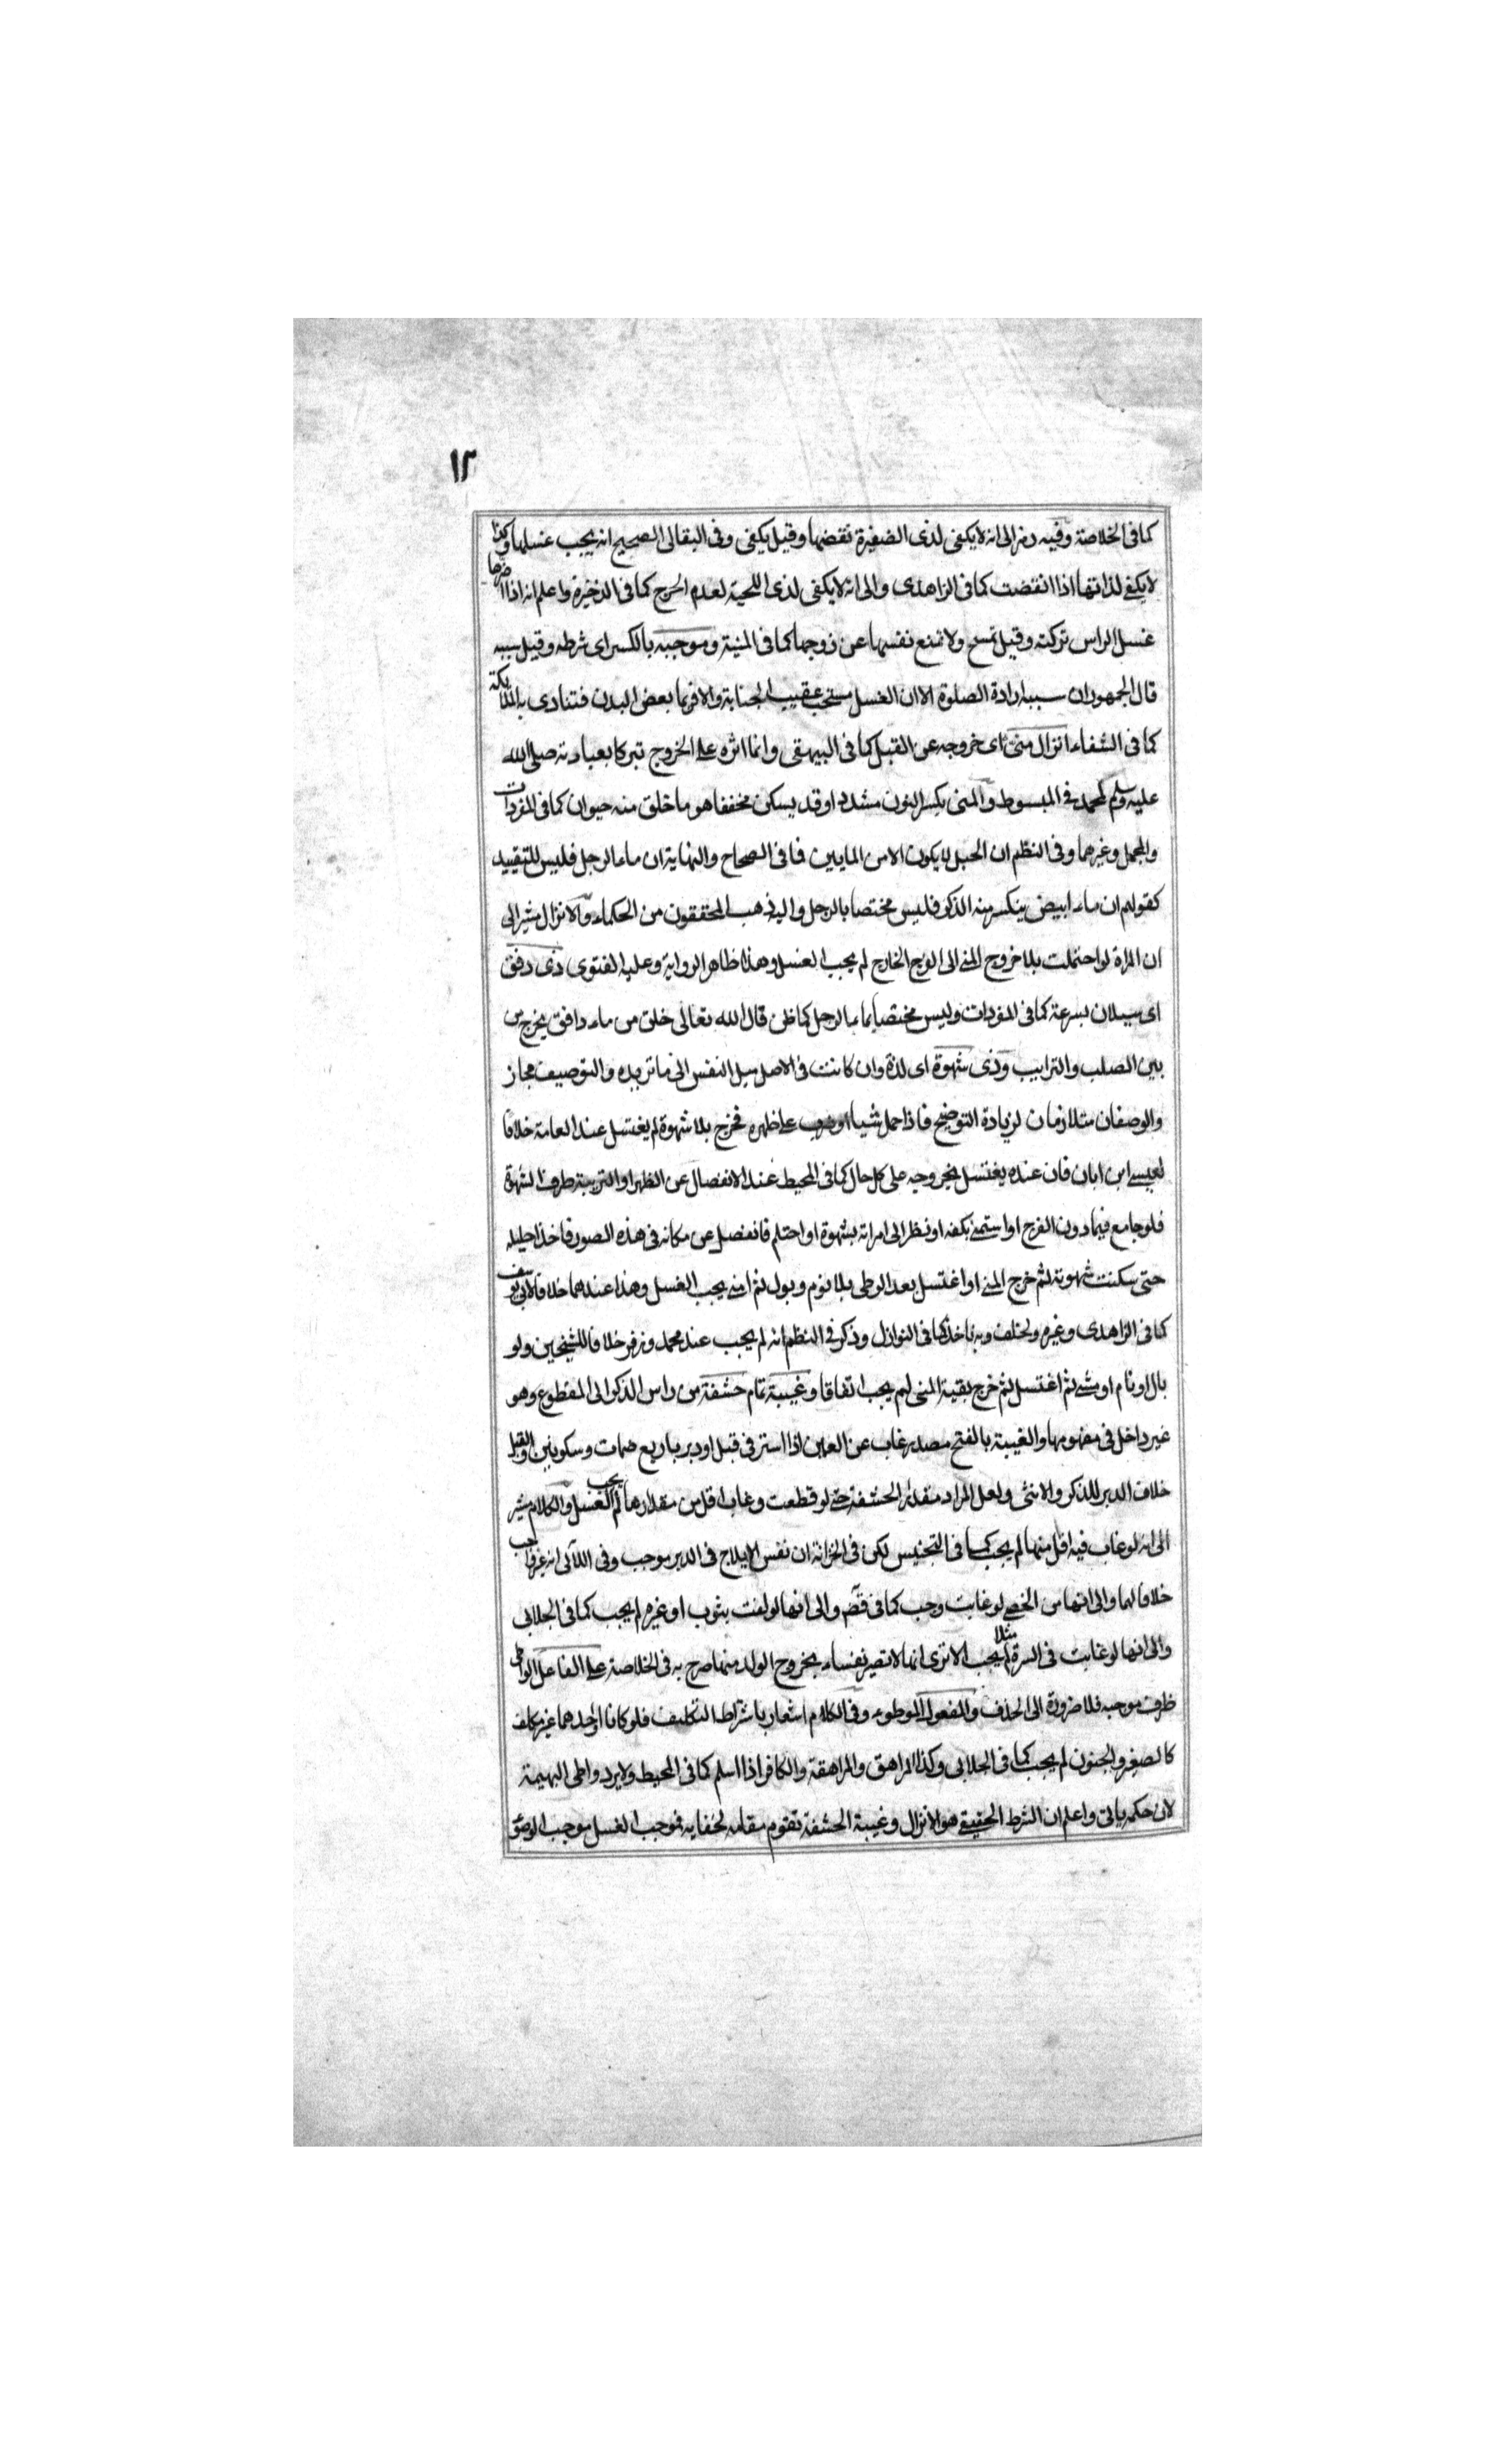 ١٢
كما فى الخلاصة وفيه رمز الى انه لا يكفى لذى الضفيرة نقضها وقيل يكفى وفى البقالى الصحيح انه يجب غسلها وكذا
لا يكفى لذاتها اذا انقضت كما فى الزاهدى والى انه لا يكفى لذى اللحية لعدم الحرج كما فى الذخيرة واعلم انه اذا اضرها
غسل الراس تركته وقيل تمسح ولا تمنع نفسها عن زوجها كما فى المنية وموجبه بالكسر اى شرطه وقيل سببه
قال الجمهور ان سببه ارادة الصلوة الا ان الغسل مستحب عقيب الجنابة والا فربما بعض البدن فتتاذى به الملائكة
كما فى الشفاء انزال منى اى خروجه عن القبل كما فى البيهقى وانما اثره على الخروج تبركا بعبادته صلى الله
عليه وسلم لمحمد فى المبسوط والمنى بكسر النون مشددا وقد يسكن مخففا هو ما خلق منه حيوان كما فى المفردات
والمجمل وغيرهما وفى النظم ان الحبل لا يكون الا من المايين فما فى الصحاح والنهاية ان ماء الرجل فليس للتقييد
كقولهم ان ماء ابيض ينكسر منه الذكر فليس مختصا بالرجل واليه ذهب المحققون من الحكماء والانزال مشير الى
ان المراة لو احتملت بلا خروج المنى الى الفرج الخارج لم يجب الغسل وهذا ظاهر الرواية وعليه الفتوى ذى دفق
اى سيلان بسرعة كما فى المفردات وليس مختصا بماء الرجل كما ظن قال الله تعالى خلق من ماء دافق يخرج من
بين الصلب والترايب وذى شهوة اى لذة وان كانت فى الاصل ميل النفس الى ما تريده والتوصيف مجاز
والوصفان متلازمان لزيادة التوضيح فاذا حمل شيا او ضرب على ظهره فخرج بلا شهوة لم يغتسل عند العامة خلافا
لعيسى ابن ابان فان عنده يغتسل بخروجه على كل حال كما فى المحيط عند الانفصال عن الظهر او التريبة ظرف لشهوة
فلو جامع فيما دون الفرج او استمنى بكفه او نظر الى امراته بشهوة او احتلم فانفصل عن مكانه فى هذه الصور فاخذ احليله
حتى سكنت شهوته ثم خرج المنى او اغتسل بعد الوطى بلا نوم وبول ثم امنى يجب الغسل وهذا عندهما خلافا لابى يوسف
كما فى الزاهدى وغيره ولخلف وبه ناخذ كما فى النوازل وذكر فى النظم انه لم يجب عند محمد وزفر خلافا للشيخين ولو
بال او نام او مشى ثم اغتسل ثم خرج بقية المنى لم يجب اتفاقا وغيبة تمام حشفة من راس الذكر الى المقطوع وهو
غير داخل فى مفهومها والغيبة بالفتح مصدر غاب عن العين اذا استتر فى قبل او دبر باربع ضمات وسكونين والقبل
خلاف الدبر للذكر والانثى ولعل المراد مقدار الحشفة حتى لو قطعت وغاب اقل من مقدارها لم يجب الغسل والكلام مشير
الى انه لو غاب فيه اقل منها لم يجب كما فى التجنيس لكن فى الخزانة ان نفس الايلاج فى الدبر موجب وفى اللآلى انه غير واجب
خلافا لهما والى انها من الخصى لو غابت وجب كما فى قضه والى انها لو لفت بثوب او غيره لم يجب كما فى الجلابى
والى انها لو غابت فى السرة مثلا لم يجب الا ترى انها لا تصير نفساء بخروج الولد منها صرح به فى الخلاصة على الفاعل الواطى
ظرف موجبه فلا ضرورة الى الحذف والمفعول الموطوء وفى الكلام اشعار باشتراط التكليف فلو كانا او احدهما غير مكلف
كالصغير والمجنون لم يجب كما فى الجلابى وكذا المراهق والمراهقة والكافر اذا اسلم كما فى المحيط ولا يرد واطى البهيمة
لان حكمه ياتى واعلم ان الشرط الحقيقى هو الانزال وغيبة الحشفة تقوم مقامه لخفايه فموجب الغسل موجب الوضوء